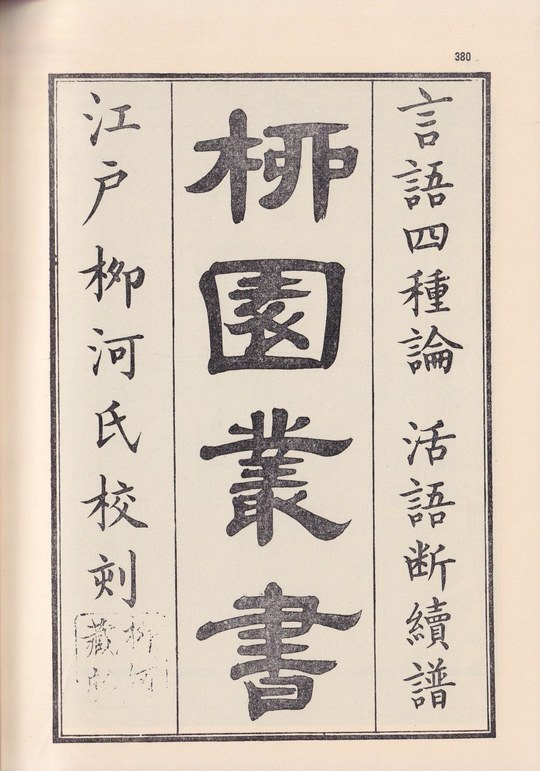 380
言語四種論　活語断續譜
柳園叢書
江戸柳河氏校刻
柳河
藏